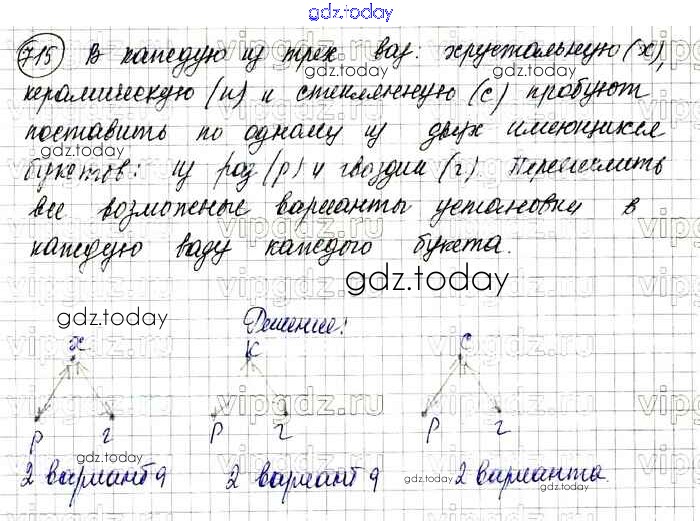 gdz.today
715 В каждую из трех ваз: хрустальную (х),
gdz.today
керамическую (к) и стеклянную (с) пробуют
поставить по одному из двух имеющихся
букетов: из роз (р) и гвоздик (г). Перечислить
gdz.today
все возможные варианты установки в
каждую вазу каждого букета.
gdz.today
gdz.today
Решение:
х К с
vipgdz.ru vipgdz.ru
р г р г р г
gdz.today
2 варианта 2 варианта 2 варианта.
gdz.today gdz.today gdz.today